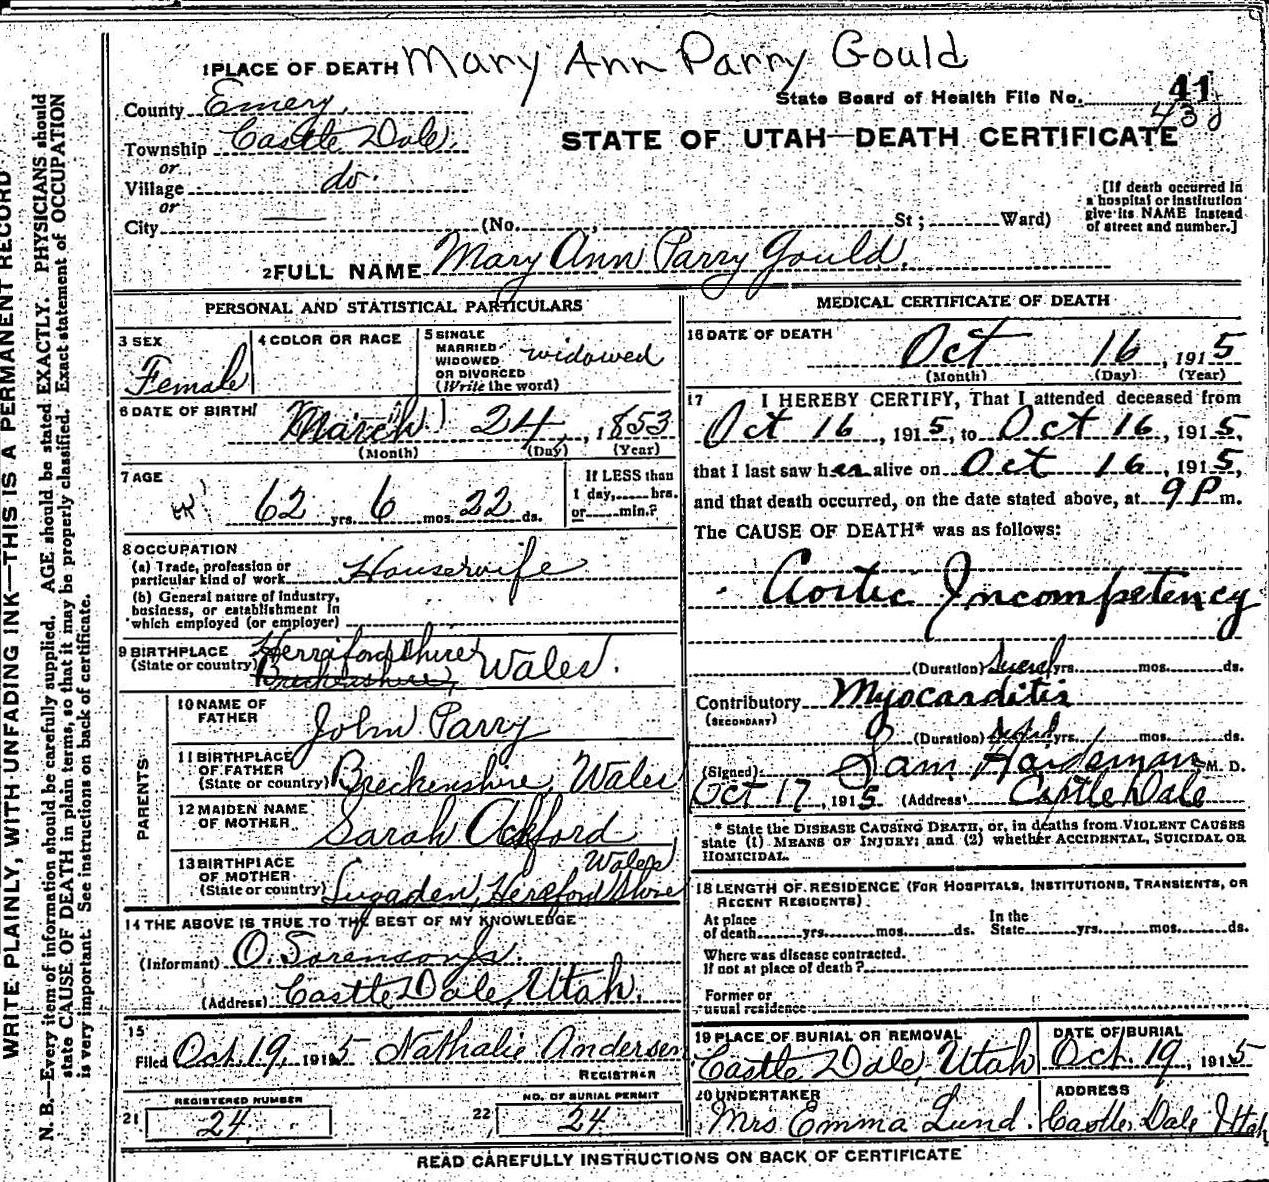 Mary Ann Parry Gould
1 PLACE OF DEATH
State Board of Health File No. 41
43
County Emery,
STATE OF UTAH—DEATH CERTIFICATE
Township Castle Dale,
or
Village do.
or
City —— (No. , St ; Ward)
[If death occurred in
a hospital or institution
give its NAME instead
of street and number.]
2 FULL NAME Mary Ann Parry Gould.
PERSONAL AND STATISTICAL PARTICULARS
3 SEX
Female
4 COLOR OR RACE
5 SINGLE
MARRIED
WIDOWED
OR DIVORCED
(Write the word)
widowed
6 DATE OF BIRTH
March 24, 1853
(Month) (Day) (Year)
7 AGE
62 yrs. 6 mos. 22 ds.
If LESS than
1 day, hrs.
or min.?
8 OCCUPATION
(a) Trade, profession or
particular kind of work Housewife
(b) General nature of Industry,
business, or establishment in
which employed (or employer)
9 BIRTHPLACE
(State or country)
Herrifordshire
Breckenshire, Wales.
PARENTS
10 NAME OF
FATHER John Parry
11 BIRTHPLACE
OF FATHER
(State or country) Breckenshire, Wales
12 MAIDEN NAME
OF MOTHER Sarah Ackford
13 BIRTHPLACE
OF MOTHER
(State or country) Lugaden, Hereford Shire
Wales
14 THE ABOVE IS TRUE TO THE BEST OF MY KNOWLEDGE
(Informant) O. Sorenson Jr.
(Address) Castle Dale, Utah.
15
Filed Oct. 19, 1915 Nathalie Andersen
REGISTRAR
21
REGISTERED NUMBER
24
22
NO. OF BURIAL PERMIT
24
MEDICAL CERTIFICATE OF DEATH
16 DATE OF DEATH
Oct 16, 1915
(Month) (Day) (Year)
17 I HEREBY CERTIFY, That I attended deceased from
Oct 16, 1915, to Oct 16, 1915,
that I last saw her alive on Oct 16, 1915,
and that death occurred, on the date stated above, at 9 P m.
The CAUSE OF DEATH* was as follows:
Aortic Incompetency
(Duration) Several yrs. mos. ds.
Contributory Myocarditis
(SECONDARY)
(Duration) yrs. mos. ds.
(Signed) Sam Hardeman M. D.
Oct 17, 1915 (Address) Castle Dale
* State the DISEASE CAUSING DEATH, or, in deaths from VIOLENT CAUSES
state (1) MEANS OF INJURY; and (2) whether ACCIDENTAL, SUICIDAL OR
HOMICIDAL.
18 LENGTH OF RESIDENCE (FOR HOSPITALS, INSTITUTIONS, TRANSIENTS, OR
RECENT RESIDENTS)
At place
of death yrs. mos. ds.
In the
State yrs. mos. ds.
Where was disease contracted.
If not at place of death?
Former or
usual residence
19 PLACE OF BURIAL OR REMOVAL
Castle Dale, Utah
DATE OF BURIAL
Oct. 19, 1915
20 UNDERTAKER
Mrs Emma Lund.
ADDRESS
Castle Dale Utah
READ CAREFULLY INSTRUCTIONS ON BACK OF CERTIFICATE
WRITE PLAINLY, WITH UNFADING INK—THIS IS A PERMANENT RECORD
N. B.—Every item of information should be carefully supplied. AGE should be stated EXACTLY. PHYSICIANS should
state CAUSE OF DEATH in plain terms, so that it may be properly classified. Exact statement of OCCUPATION
is very important. See instructions on back of certificate.